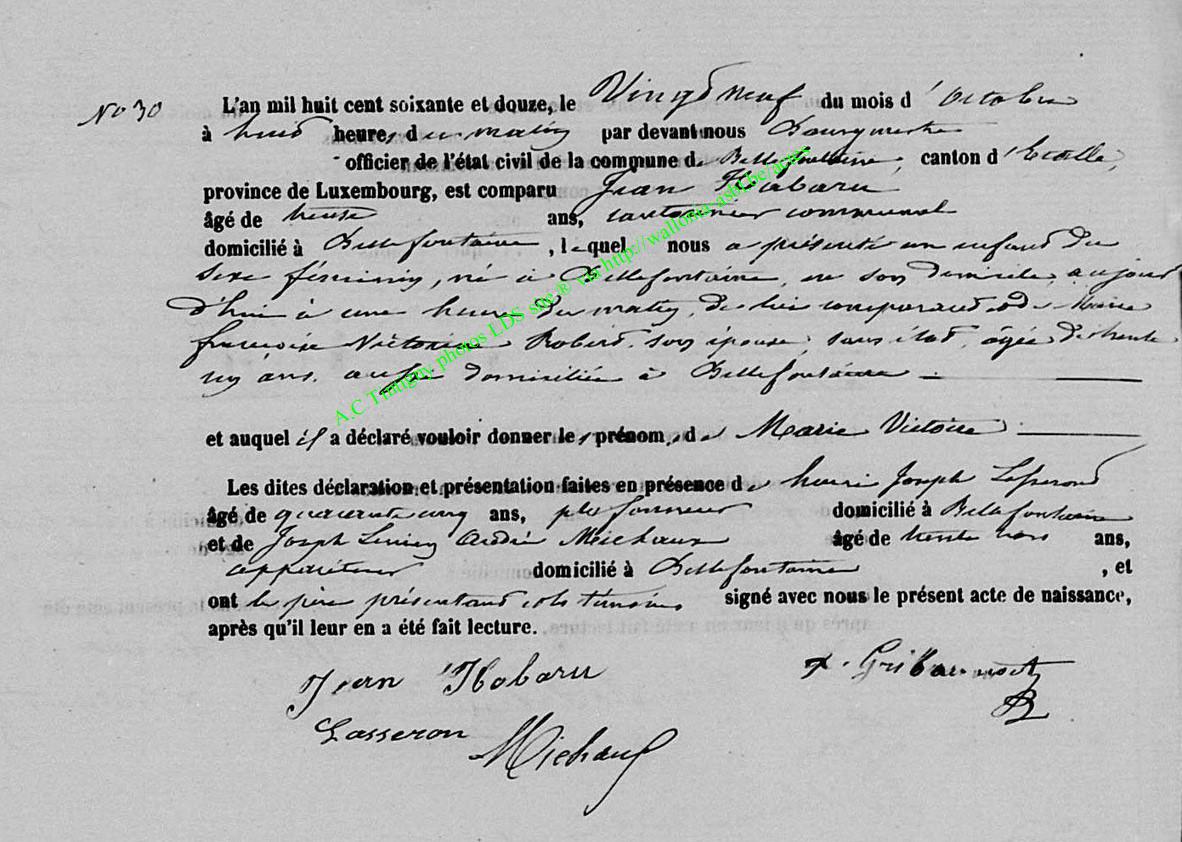 No 30
L'an mil huit cent soixante et douze, le Vingt neuf du mois d'octobre
à huit heures du matin par devant nous Bourgmestre
officier de l'état civil de la commune de Bellefontaine, canton d'Etalle,
province de Luxembourg, est comparu Jean Habaru
âgé de trente ans, cantonnier communal
domicilié à Bellefontaine, lequel nous a présenté un enfant du
sexe féminin, né à Bellefontaine, en son domicile, aujour
d'hui à une heure du matin, de lui comparant et de Marie
françoise Victoire Robert son épouse, sans état, âgée de trente
un ans, aussi domiciliée à Bellefontaine
et auquel il a déclaré vouloir donner les prénoms de Marie Victoire
Les dites déclaration et présentation faites en présence de henri Joseph
âgé de quarante cinq ans, plafonneur domicilié à Bellefontaine
et de Joseph André Michaux âgé de trente trois ans,
appariteur domicilié à Bellefontaine, et
ont les père présentant et les témoins signé avec nous le présent acte de naissance,
après qu'il leur en a été fait lecture.
Jean Habaru
Gribaumont
Lasseron
Michaux
A.C Tintigny photos LDS site ® via http://wallonia-asbl.be/actes